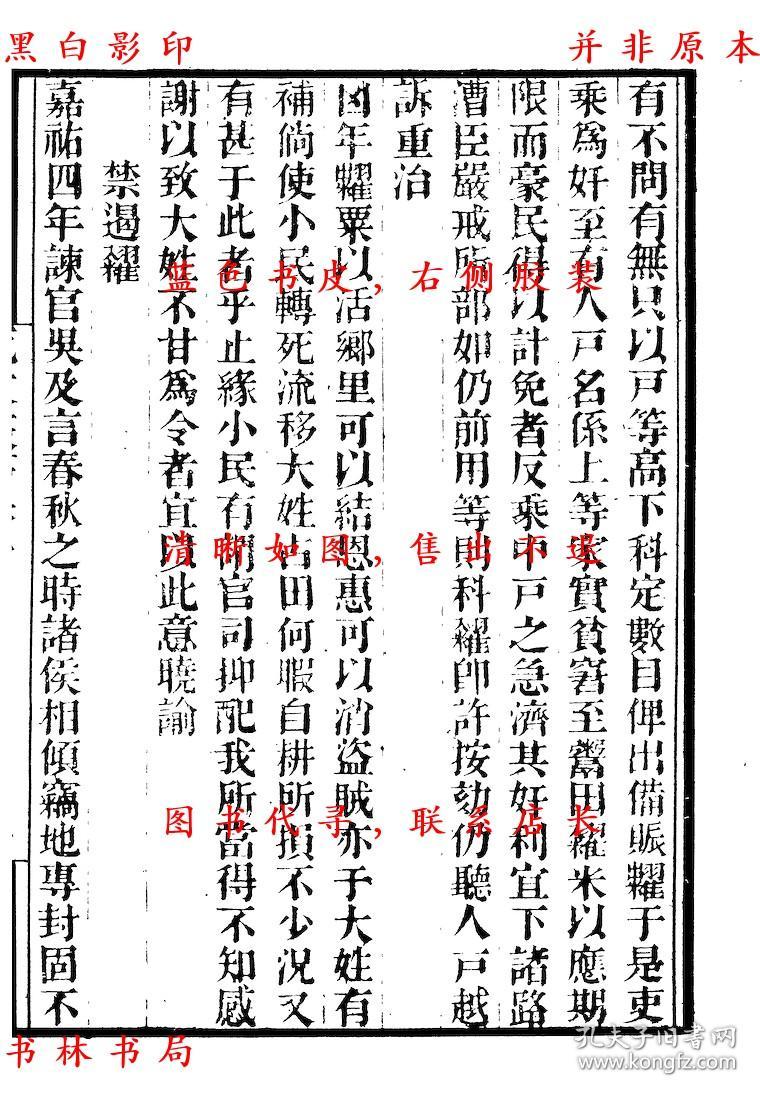 黑白影印
并非原本
有不問有無只以戸等高下科定數目俾出備賑糶于是吏
乘爲奸至有人戸名係上等家實貧窘至鬻田糴米以應期
限而豪民得以計免者反乘中戸之急濟其奸利宜下諸路
漕臣嚴戒所部如仍前用等則科糴卽許按劾仍聽人戸越
訴重治
凶年糶粟以活鄉里可以結恩惠可以消盜賊亦于大姓有
補倘使小民轉死流移大姓占田何暇自耕所損不少況又
有甚于此者乎止緣小民有謂官司抑配我所當得不知感
謝以致大姓不甘爲令者宜以此意曉諭
禁遏糴
嘉祐四年諫官吳及言春秋之時諸侯相傾竊地專封固不
蓝色书皮，右侧胶装
清晰如图，售出不退
图书代寻，联系店长
书林书局
孔夫子旧书网
www.kongfz.com